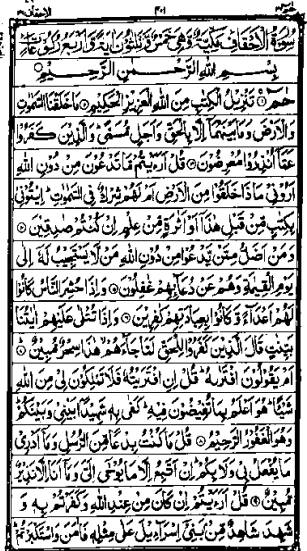 ٤٠١
سُورَةُ الْاَحْقَافِ مَكِّيَّةٌ وَّهِيَ خَمْسٌ وَّثَلٰثُوْنَ اٰيَةً وَّاَرْبَعُ رُكُوْعَاتٍ
بِسْمِ اللّٰهِ الرَّحْمٰنِ الرَّحِيْمِ
حٰمٓ تَنْزِيْلُ الْكِتٰبِ مِنَ اللّٰهِ الْعَزِيْزِ الْحَكِيْمِ مَا خَلَقْنَا السَّمٰوٰتِ
وَالْاَرْضَ وَمَا بَيْنَهُمَآ اِلَّا بِالْحَقِّ وَاَجَلٍ مُّسَمًّى وَالَّذِيْنَ كَفَرُوْا
عَمَّآ اُنْذِرُوْا مُعْرِضُوْنَ قُلْ اَرَءَيْتُمْ مَّا تَدْعُوْنَ مِنْ دُوْنِ اللّٰهِ
اَرُوْنِيْ مَاذَا خَلَقُوْا مِنَ الْاَرْضِ اَمْ لَهُمْ شِرْكٌ فِي السَّمٰوٰتِ اِيْتُوْنِيْ
بِكِتٰبٍ مِّنْ قَبْلِ هٰذَآ اَوْ اَثٰرَةٍ مِّنْ عِلْمٍ اِنْ كُنْتُمْ صٰدِقِيْنَ
وَمَنْ اَضَلُّ مِمَّنْ يَّدْعُوْا مِنْ دُوْنِ اللّٰهِ مَنْ لَّا يَسْتَجِيْبُ لَهٗٓ اِلٰى
يَوْمِ الْقِيٰمَةِ وَهُمْ عَنْ دُعَآئِهِمْ غٰفِلُوْنَ وَاِذَا حُشِرَ النَّاسُ كَانُوْا
لَهُمْ اَعْدَآءً وَّكَانُوْا بِعِبَادَتِهِمْ كٰفِرِيْنَ وَاِذَا تُتْلٰى عَلَيْهِمْ اٰيٰتُنَا
بَيِّنٰتٍ قَالَ الَّذِيْنَ كَفَرُوْا لِلْحَقِّ لَمَّا جَآءَهُمْ هٰذَا سِحْرٌ مُّبِيْنٌ
اَمْ يَقُوْلُوْنَ افْتَرٰىهُ قُلْ اِنِ افْتَرَيْتُهٗ فَلَا تَمْلِكُوْنَ لِيْ مِنَ اللّٰهِ
شَيْئًا هُوَ اَعْلَمُ بِمَا تُفِيْضُوْنَ فِيْهِ كَفٰى بِهٖ شَهِيْدًۢا بَيْنِيْ وَبَيْنَكُمْ
وَهُوَ الْغَفُوْرُ الرَّحِيْمُ قُلْ مَا كُنْتُ بِدْعًا مِّنَ الرُّسُلِ وَمَآ اَدْرِيْ
مَا يُفْعَلُ بِيْ وَلَا بِكُمْ اِنْ اَتَّبِعُ اِلَّا مَا يُوْحٰٓى اِلَيَّ وَمَآ اَنَا اِلَّا نَذِيْرٌ
مُّبِيْنٌ قُلْ اَرَءَيْتُمْ اِنْ كَانَ مِنْ عِنْدِ اللّٰهِ وَكَفَرْتُمْ بِهٖ وَ
شَهِدَ شَاهِدٌ مِّنْۢ بَنِيْٓ اِسْرَآءِيْلَ عَلٰى مِثْلِهٖ فَاٰمَنَ وَاسْتَكْبَرْتُمْ